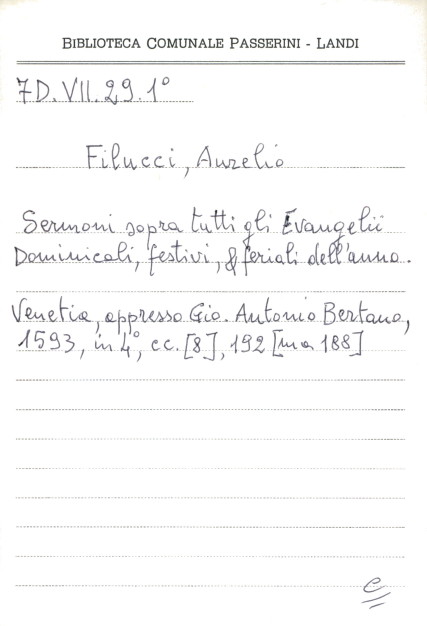 BIBLIOTECA COMUNALE PASSERINI - LANDI
7D.VII.29.1°
Filucci, Aurelio
Sermoni sopra tutti gli Evangelii
Dominicali, festivi, & feriali dell'anno.
Venetia, appresso Gio. Antonio Bertano,
1593, in 4°, cc. [8], 192 [ma 188]
e